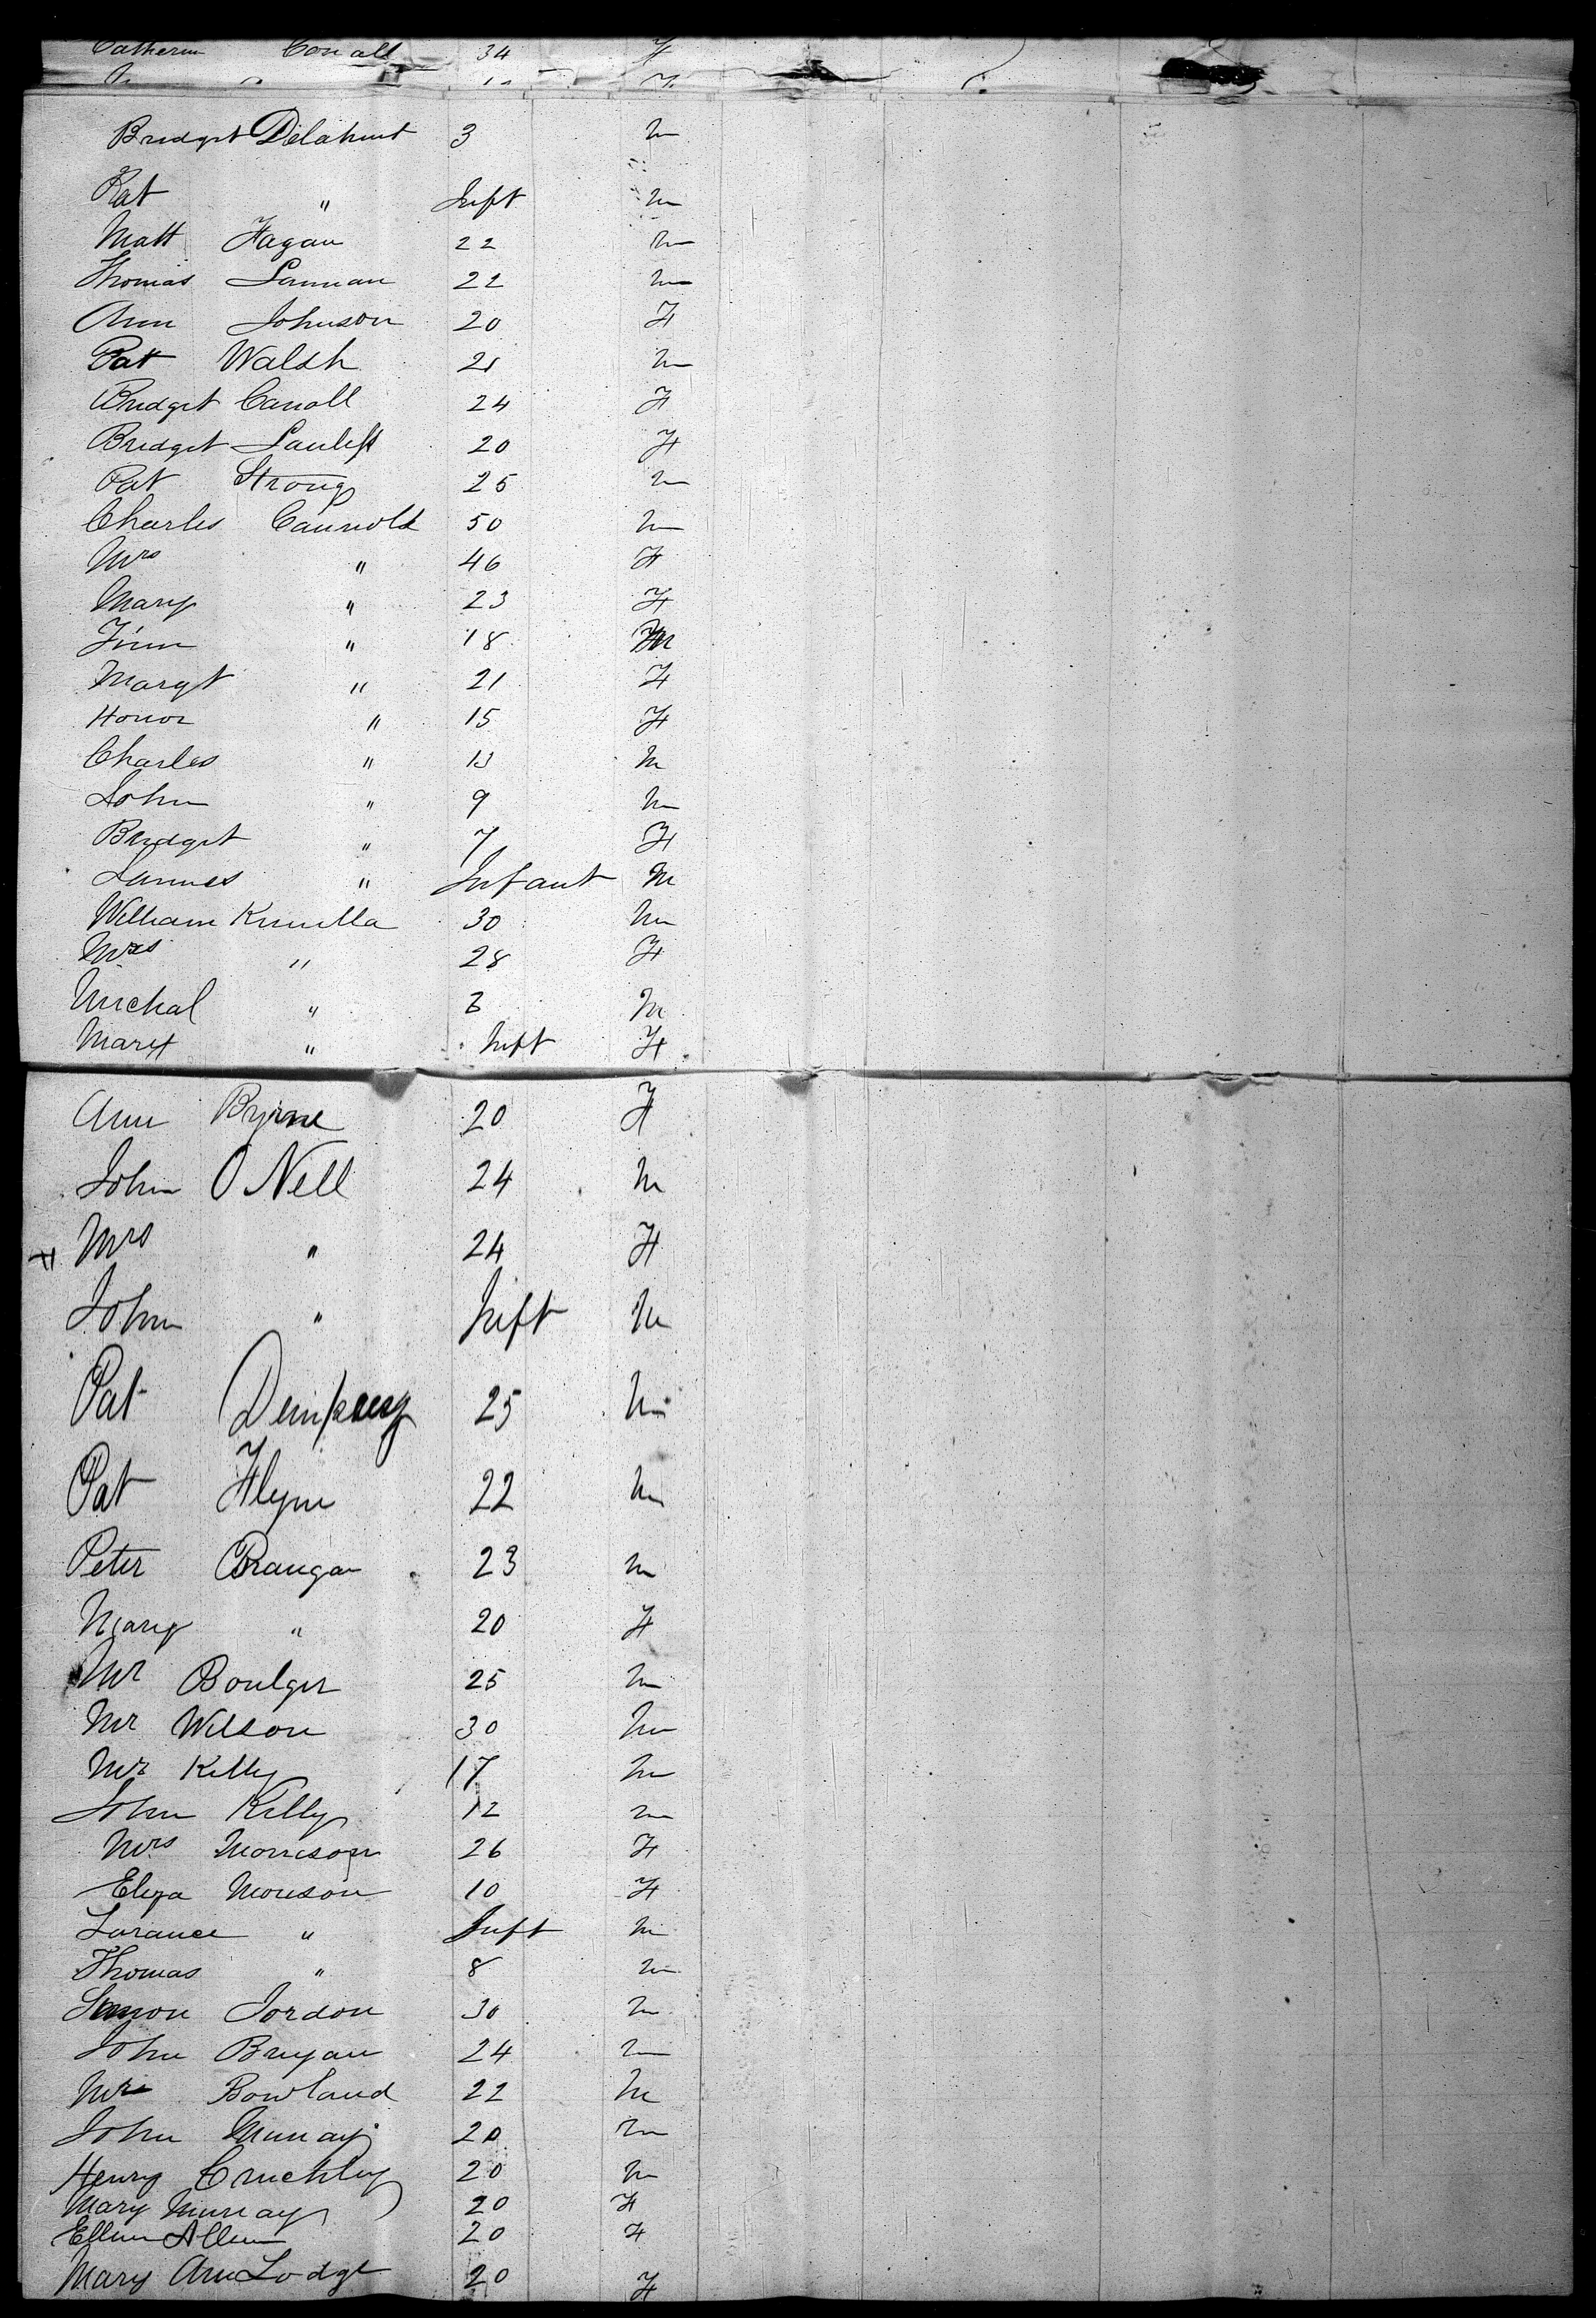 Catherin 34 F
Bridget Delahunt 3 m
Pat " Inft m
Matt Fagan 22 m
Thomas Lannan 22 m
Ann Johnson 20 F
Pat Walsh 21 m
Bridget Carroll 24 F
Bridget Lawless 20 F
Pat Strong 25 m
Charles 50 m
Mrs " 46 F
Mary " 23 F
Jim " 18 M
Margt " 21 F
Honor " 15 F
Charles " 13 m
John " 9 m
Bridget " 7 F
James " Infant M
William Kinsella 30 m
Mrs " 28 F
Michal " 3 M
Mary " Inft F
Ann Byrne 20 F
John O Nell 24 M
Mrs " 24 F
John " Inft M
Pat Dempsey 25 M
Pat Flynn 22 M
Peter Brangan 23 m
Mary " 20 F
Mr Boulger 25 m
Mr Wilson 30 m
Mr Kelly 17 m
John Kelly 12 m
Mrs Morrison 26 F
Eliza Morrison 10 F
Larance " Inft m
Thomas " 8 m
Simon Jordon 30 m
John Bryan 24 m
Mr Bowland 22 M
John Murray 20 m
Henry Cruchley 20 m
Mary Murray 20 F
Ellen Allen 20 F
Mary Ann Lodge 20 F